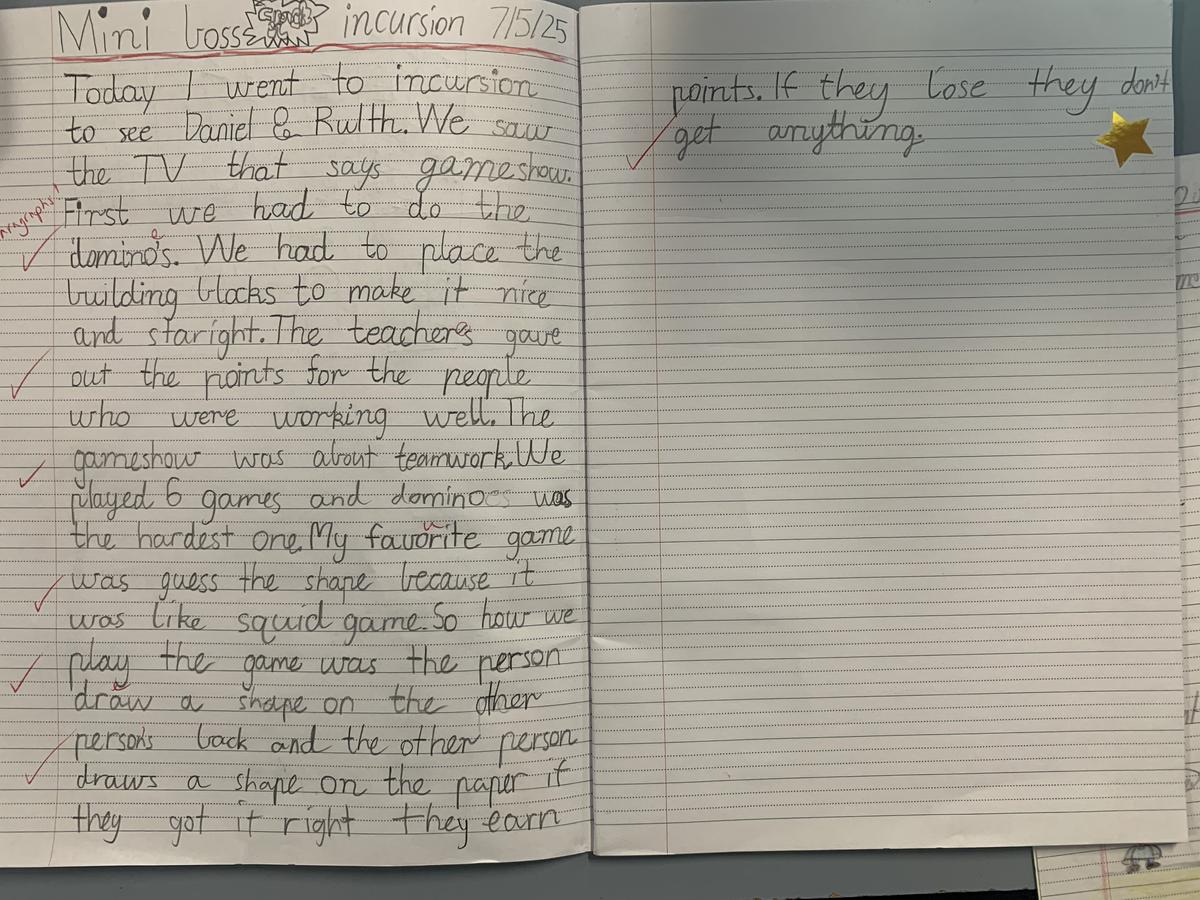 Mini boss smack incursion 7/5/25
Today I went to incursion
to see Daniel & Rulth. We saw
the TV that says gameshow.
Paragraphs!
First we had to do the
domino's. We had to place the
e
building blocks to make it nice
and staright. The teachers gave
out the points for the people
who were working well. The
gameshow was about teamwork. We
played 6 games and dominoes was
the hardest one. My favorite game
u
was guess the shape because it
was like squid game. So how we
play the game was the person
draw a shape on the other
person's back and the other person
draws a shape on the paper if
they got it right they earn
points. If they lose they don't
get anything.